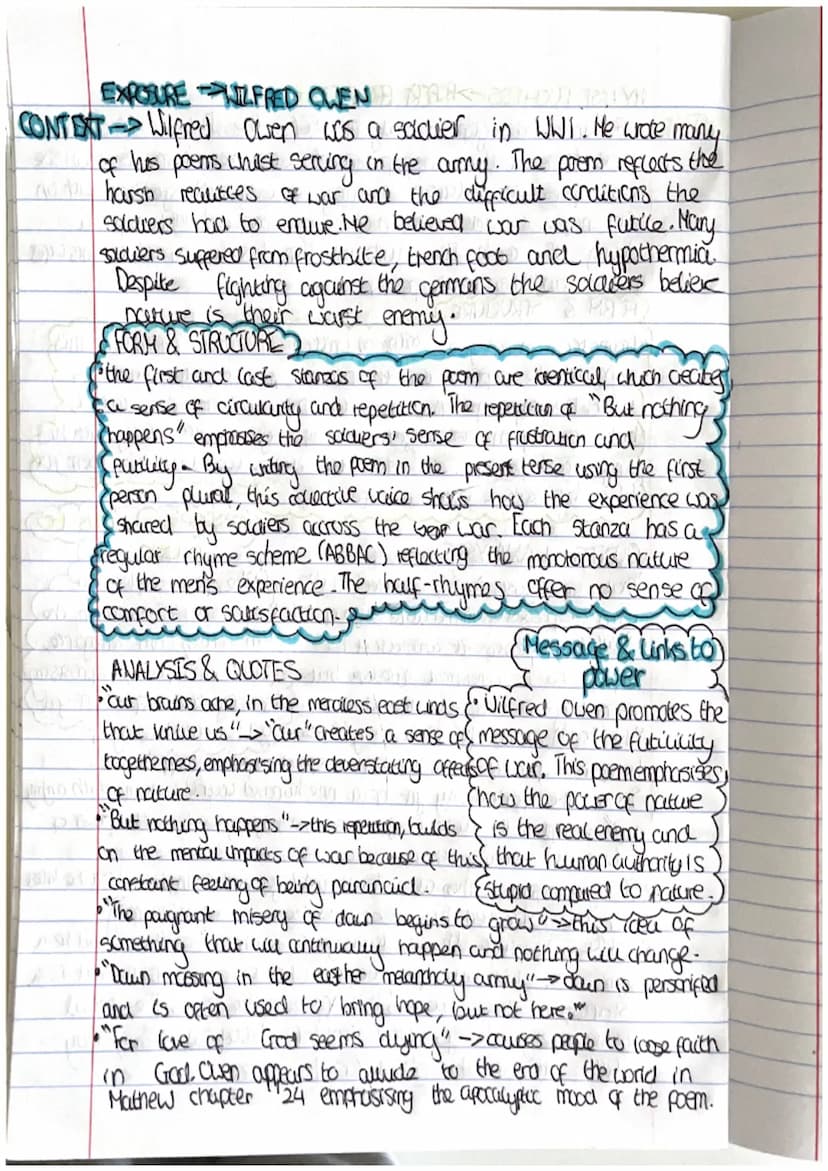 EXPOSURE → WILFRED OWEN
CONTEXT → Wilfred Owen was a soldier in WW1. He wrote many
of his poems whilst serving in the army. The poem reflects the
harsh realities of war and the difficult conditions the
soldiers had to endure. He believed war was futile. Many
soldiers suffered from frostbite, trench foot and hypothermia.
Despite fighting against the germans the soldiers believe
nature is their worst enemy.
FORM & STRUCTURE
• the first and last stanzas of the poem are identical, which creates
a sense of circularity and repetition. The repetition of "But nothing
happens" emphasises the soldiers' sense of frustration and
futility. By writing the poem in the present tense using the first
person plural, this collective voice shows how the experience was
shared by soldiers accross the war. Each stanza has a
regular rhyme scheme (ABBAC) reflecting the monotonous nature
of the men's experience. The half-rhymes offer no sense of
comfort or satisfaction.
ANALYSIS & QUOTES
• "our brains ache, in the merciless east winds
that knive us" → "our" creates a sense of
togetherness, emphasising the deverstating affects
of nature.
• "But nothing happens" → this repetition, builds
on the mental impacts of war because of this
constant feeling of being paranoid.
Message & Links to
power
• Wilfred Owen promotes the
message of the futilility
of war. This poem emphasises
how the power of nature
is the real enemy and
that human authority is
stupid compared to nature.
• "The poignant misery of dawn begins to grow" → this idea of
something that will continually happen and nothing will change.
• "Dawn massing in the east her melancholy army" → dawn is personified
and is often used to bring hope, but not here."
• "For love of God seems dying" → causes people to loose faith
in God. Owen appears to allude to the end of the world in
Mathew chapter 24 emphasising the apocalyptic mood of the poem.